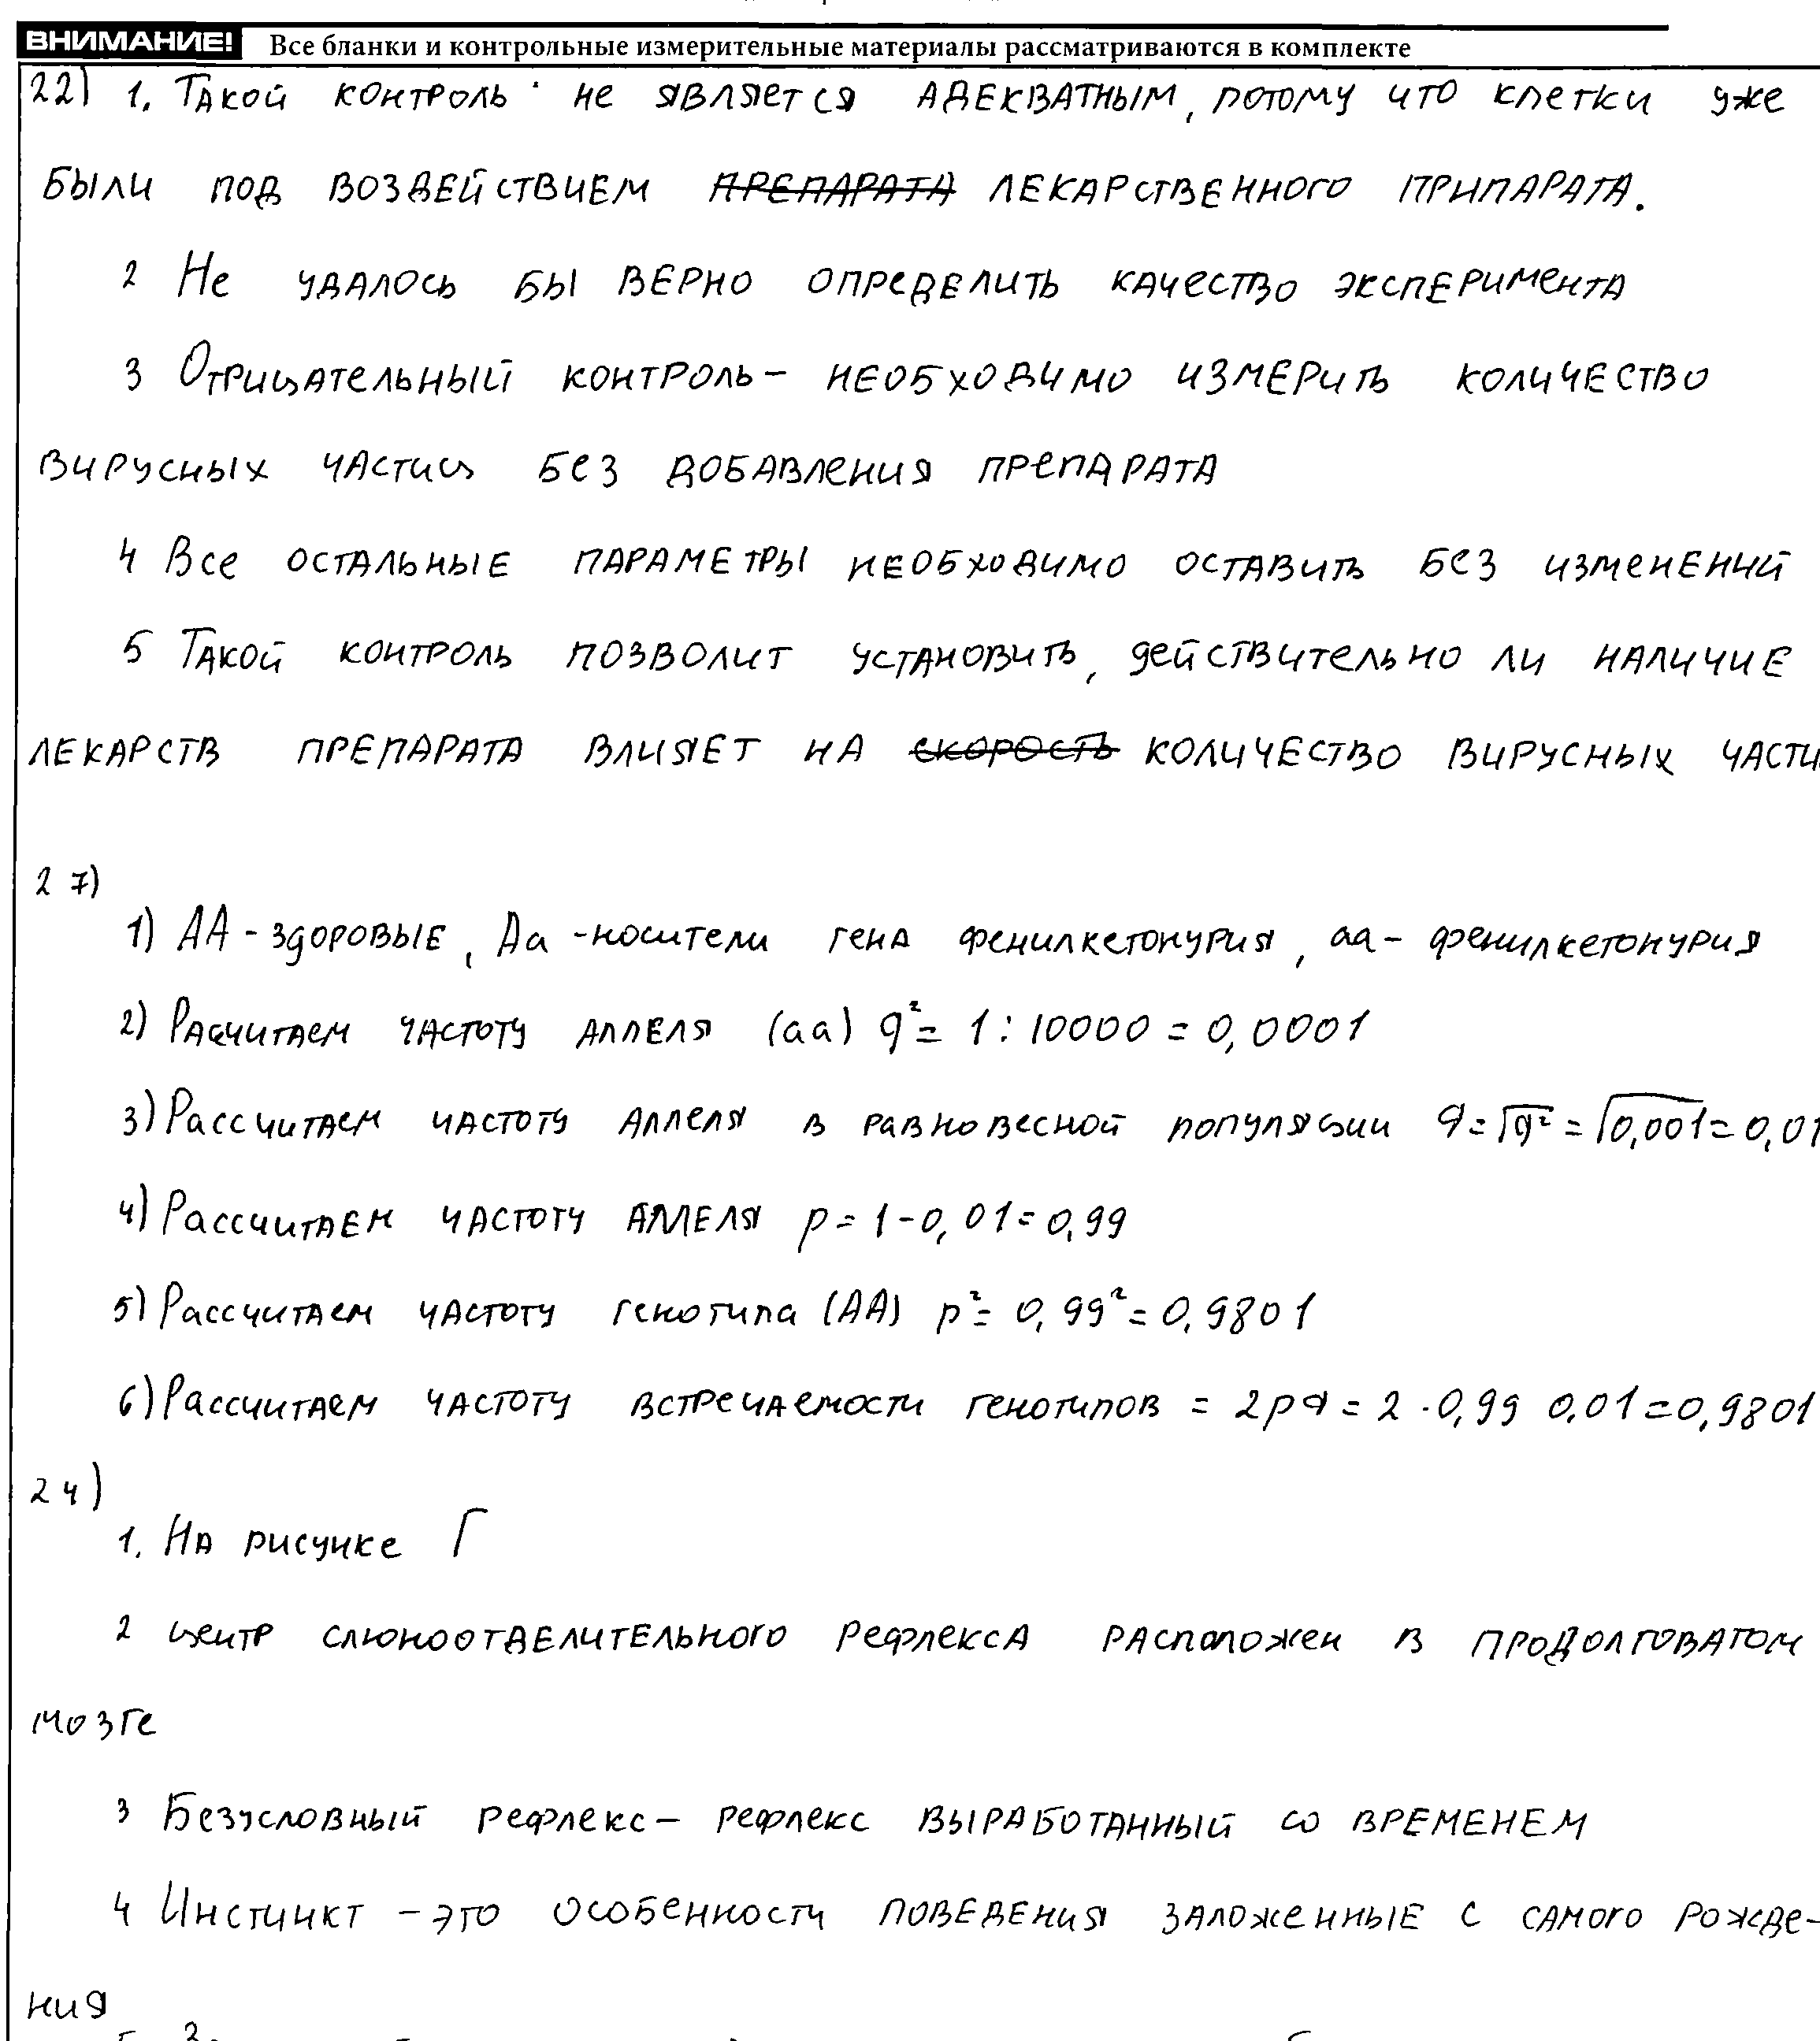 ВНИМАНИЕ! Все бланки и контрольные измерительные материалы рассматриваются в комплекте
22) 1. Такой контроль не является адекватным, потому что клетки уже
были под воздействием препарата лекарственного припарата.
2 Не удалось бы верно определить качество эксперимента
3 Отрицательный контроль - необходимо измерить количество
вирусных частиц без добавления препарата
4 Все остальные параметры необходимо оставить без изменений
5 Такой контроль позволит установить, действительно ли наличие
лекарств препарата влияет на скорость количество вирусных части
27)
1) АА - здоровые, Аа - носители гена фенилкетонурия, аа - фенилкетонурия
2) Расчитаем частоту аллеля (аа) q² = 1 : 10000 = 0,0001
3) Рассчитаем частоту аллеля в равновесной популяции q = √q² = √0,001 = 0,01
4) Рассчитаем частоту аллеля p = 1 - 0,01 = 0,99
5) Рассчитаем частоту генотипа (АА) p² = 0,99² = 0,9801
6) Рассчитаем частоту встречаемости генотипов = 2pq = 2 · 0,99 0,01 = 0,9801
24)
1. На рисунке Г
2 центр слюноотделительного рефлекса расположен в продолговатом
мозге
3 Безусловный рефлекс - рефлекс выработанный со временем
4 Инстинкт - это особенности поведения заложенные с самого рожде-
ния